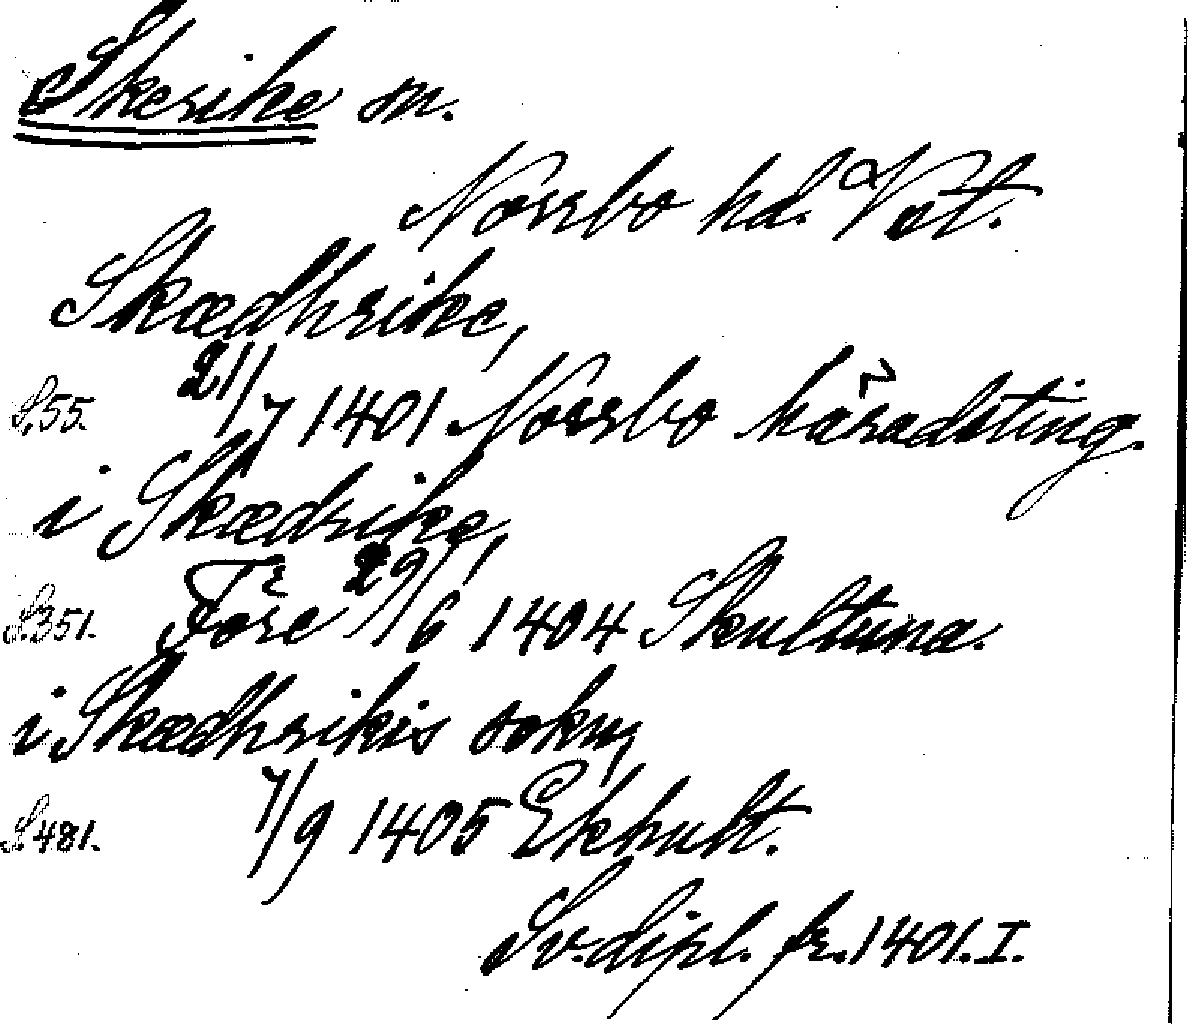 Skerike sn.
Norrbo hd. Vstm.
Skædhrike,
S.55. 21/7 1401 Norrbo häradsting.
i Skædrike,
S.351. Före 29/6 1404 Skultuna.
i Skædhrikis sokn,
S.481. 7/9 1405 Ekhult.
Sv.dipl. fr. 1401. I.